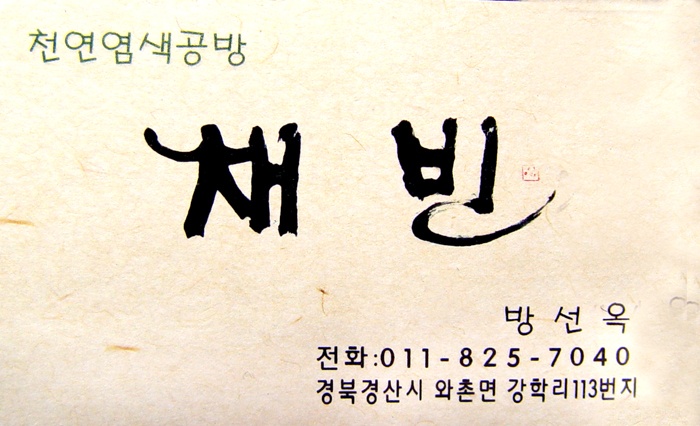 천연염색공방
채 빈
방 선 옥
전화:011-825-7040
경북경산시 와촌면 강학리113번지